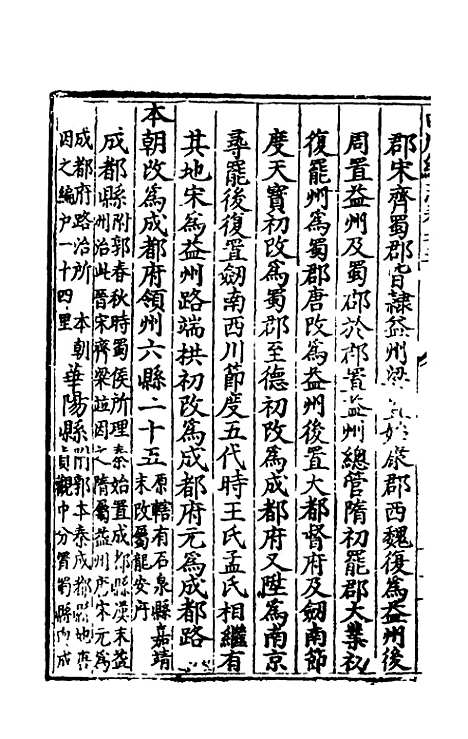 郡宋齊蜀郡皆隸益州梁始康郡西魏復為益州後
周置益州及蜀郡於郡置益州總管隋初罷郡大業初
復罷州為蜀郡唐改為益州後置大都督府及劔南節
度天寶初改為蜀郡至德初改為成都府又陞為南京
尋罷後復置劔南西川節度五代時王氏孟氏相繼有
其地宋為益州路端拱初改為成都府元為成都路
本朝改為成都府領州六縣二十五原轄有石泉縣嘉靖
末改屬龍安府
成都縣附郭春秋時蜀侯所理秦始置成都縣漢末益
州治此晋宋齊梁並因之隋屬益州唐宋元為
成都府路治所本朝
因之編户一十四里
華陽縣附郭本秦成都縣地唐
貞觀中分置蜀縣與成